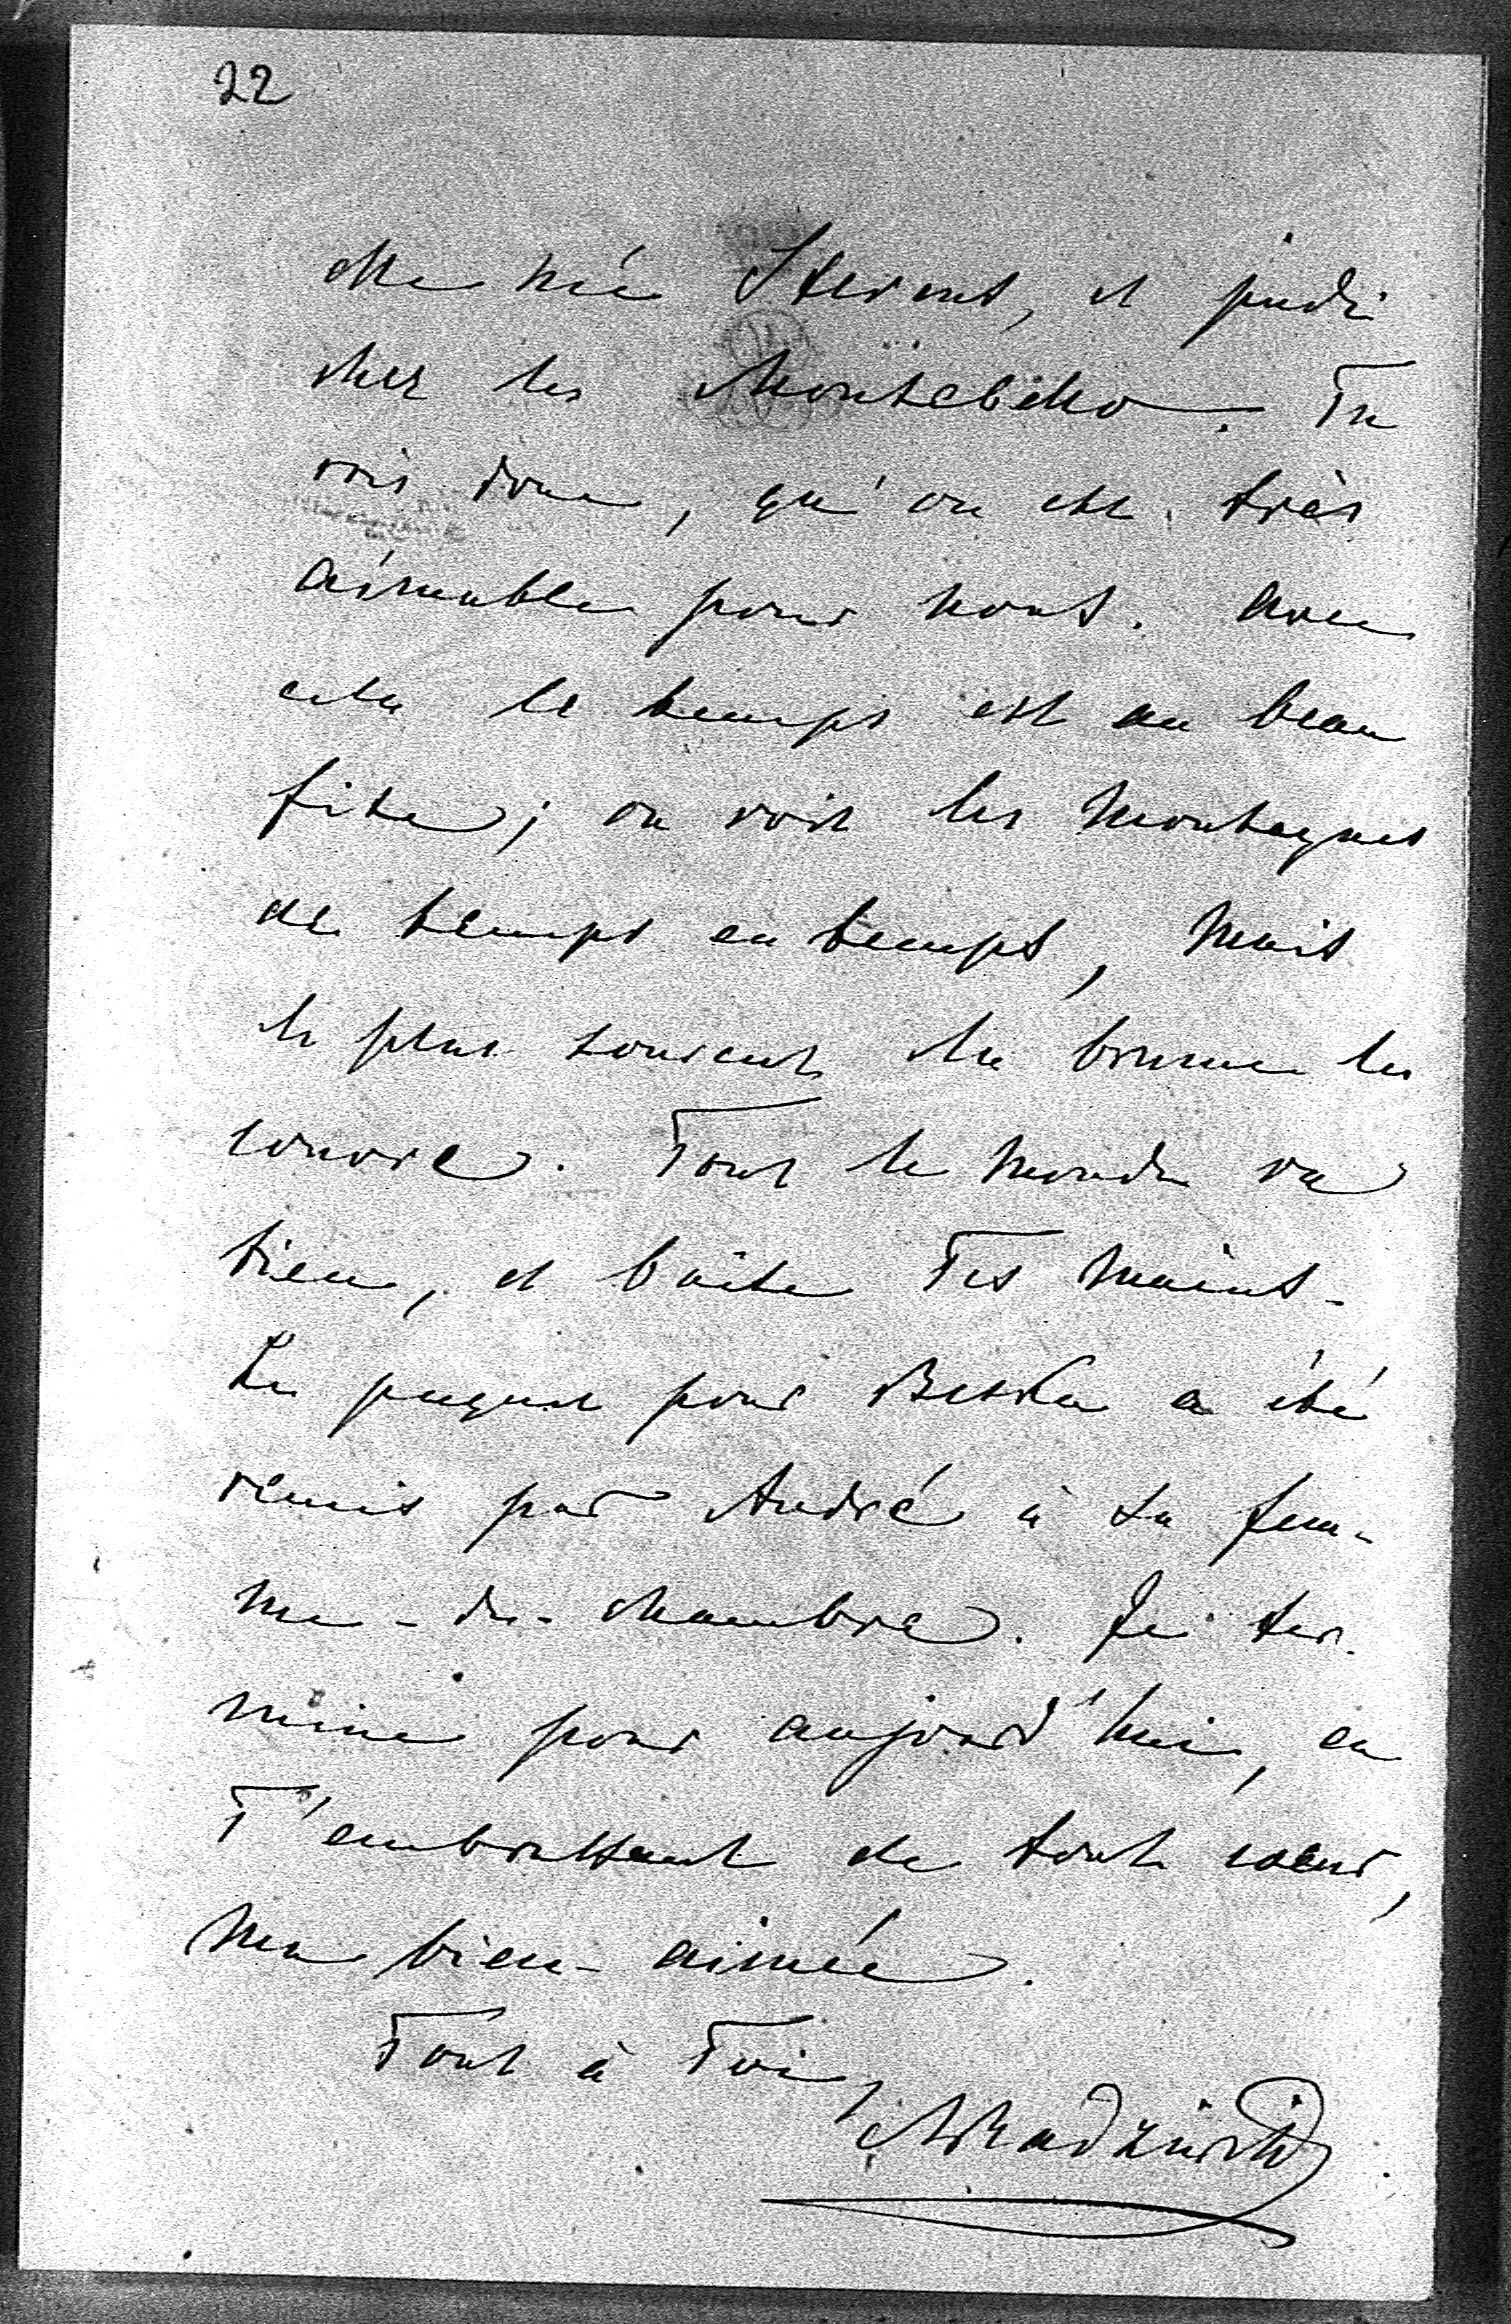 22
elle née Sterens, et jeudi
chez les Montebello. Tu
vois donc, qu'on est très
aimable pour nous. Avec
cela le temps est au beau
fixe; on voit les montagnes
de temps en temps, mais
le plus souvent la brume les
couvre. Tout le monde va
bien, et baise Tes mains.
Le paquet pour Biska a été
remis par André à sa fem-
me-de-chambre. Je ter-
mine pour aujourd'hui, en
T'embrassant de tout cœur,
ma bien-aimée.
Tout à Toi,
ARadziwiłł